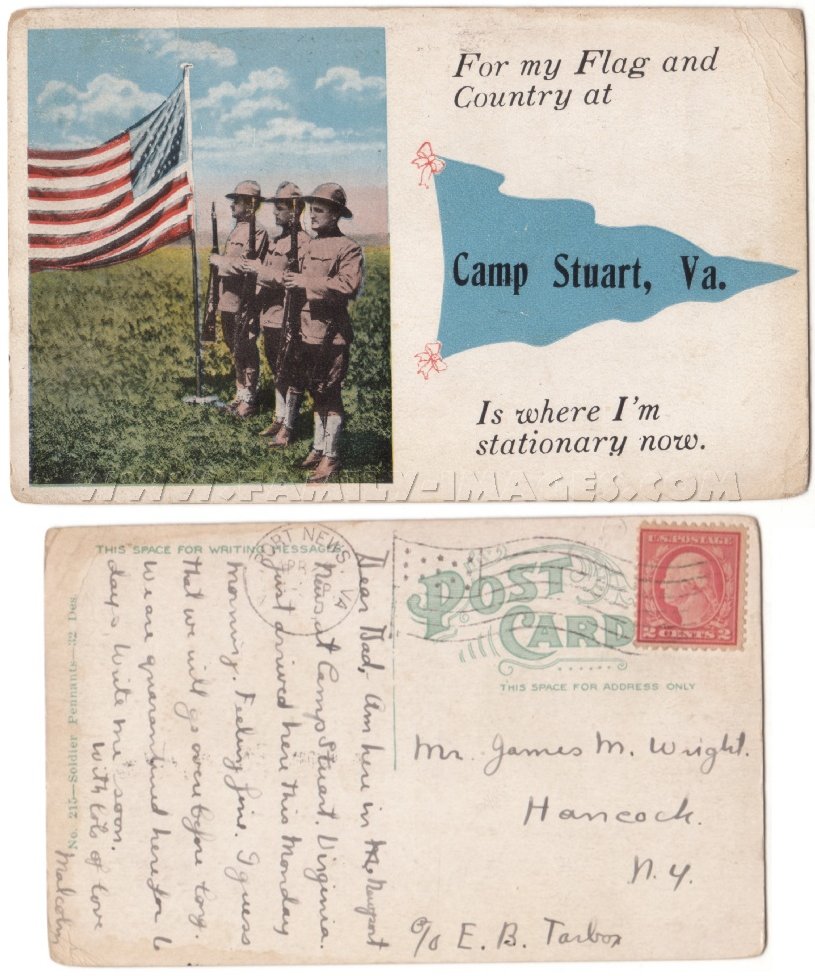 For my Flag and
Country at
Camp Stuart, Va.
Is where I'm
stationary now.
WWW.FAMILY-IMAGES.COM
THIS SPACE FOR WRITING MESSAGES
PORT NEWS, VA
POST
CARD
U.S. POSTAGE
2 CENTS 2
THIS SPACE FOR ADDRESS ONLY
Dear Dad, Am here in Newport
News, at Camp Stuart. Virginia.
Just arrived here this Monday
morning. Feeling fine. I guess
that we will go over before long.
We are quarantined here for 6
days. Write me soon.
With lots of love
Malcolm
No. 215—Soldier Pennants—32 Des.
Mr. James M. Wright.
Hancock.
N.Y.
c/o E. B. Tarbox